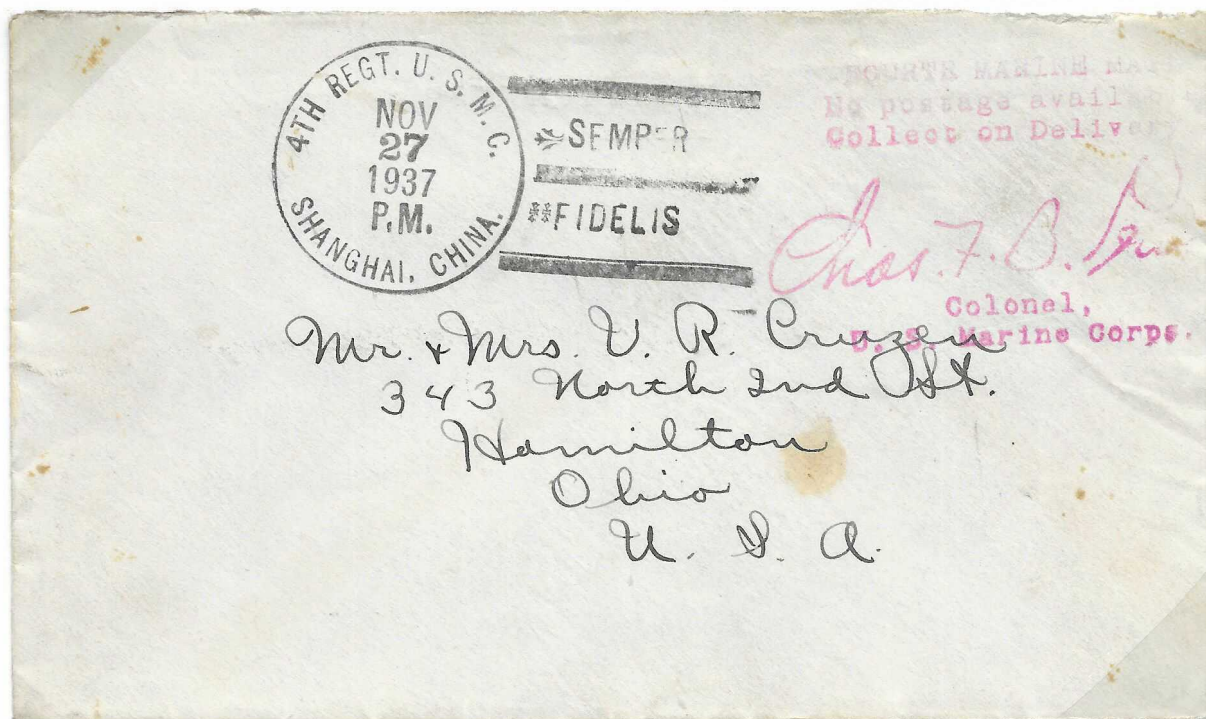 4TH REGT. U. S. M. C.
NOV
27
1937
P.M.
SHANGHAI, CHINA.
SEMPER
FIDELIS
FOURTH MARINE
No postage
Collect on
Chas. F. B.
Colonel,
U. S. Marine Corps.
Mr. & Mrs. V. R. Cruzen
343 North 2nd St.
Hamilton
Ohio
U. S. A.